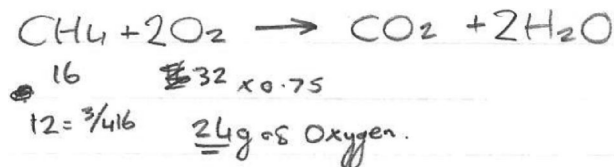 CH4 + 2O2 → CO2 + 2H2O
16 32 x 0.75
12 = 3/4 16 24g of Oxygen.